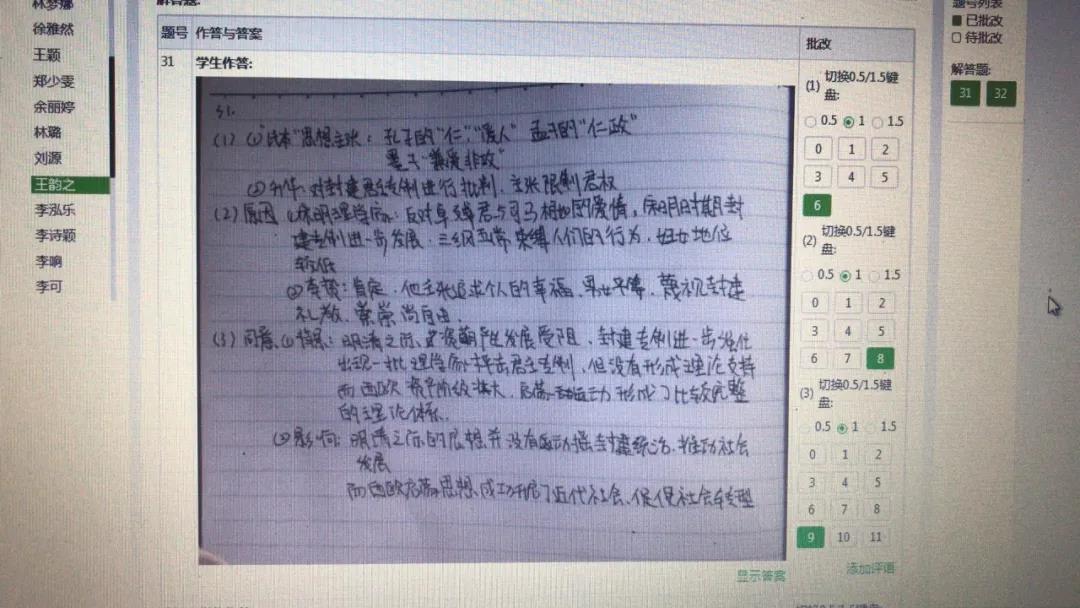 林梦娜
徐雅然
王颖
郑少雯
余丽婷
林璐
刘源
王韵之
李泓乐
李诗颖
李响
李可
解答题:
题号 作答与答案
批改
31 学生作答:
31.
(1) ① "民本"思想主张: 孔子的"仁""爱人" 孟子的"仁政"
墨子"兼爱非攻"
② 升华: 对封建君主专制进行批判, 主张限制君权
(2) 原因 ① 宋明理学家: 反对卓文君与司马相如的爱情, 宋明时期封
建专制进一步发展, 三纲五常 束缚人们的行为, 妇女地位
较低
② 李贽: 肯定, 他主张追求个人的幸福, 男女平等, 蔑视封建
礼教, 崇尚自由.
(3) 同意. ① 背景: 明清之际, 资萌产生发展受阻, 封建专制进一步强化
出现一批理学家抨击君主专制, 但没有形成理论支持
而西欧 资产阶级壮大, 启蒙运动 形成了比较完整
的理论体系.
② 影响: 明清之际的思想并没有动摇封建统治, 推动社会
发展
而西欧启蒙思想 成功开启了近代社会, 促使社会转型
显示答案
(1) 切换0.5/1.5键
盘:
0.5 1 1.5
0 1 2
3 4 5
6
(2) 切换0.5/1.5键
盘:
0.5 1 1.5
0 1 2
3 4 5
6 7 8
(3) 切换0.5/1.5键
盘:
0.5 1 1.5
0 1 2
3 4 5
6 7 8
9 10 11
添加评语
题号列表
已批改
待批改
解答题:
31 32